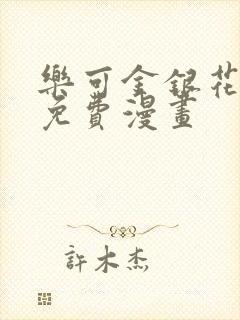 樂可金銀花
免費漫畫
許木杰